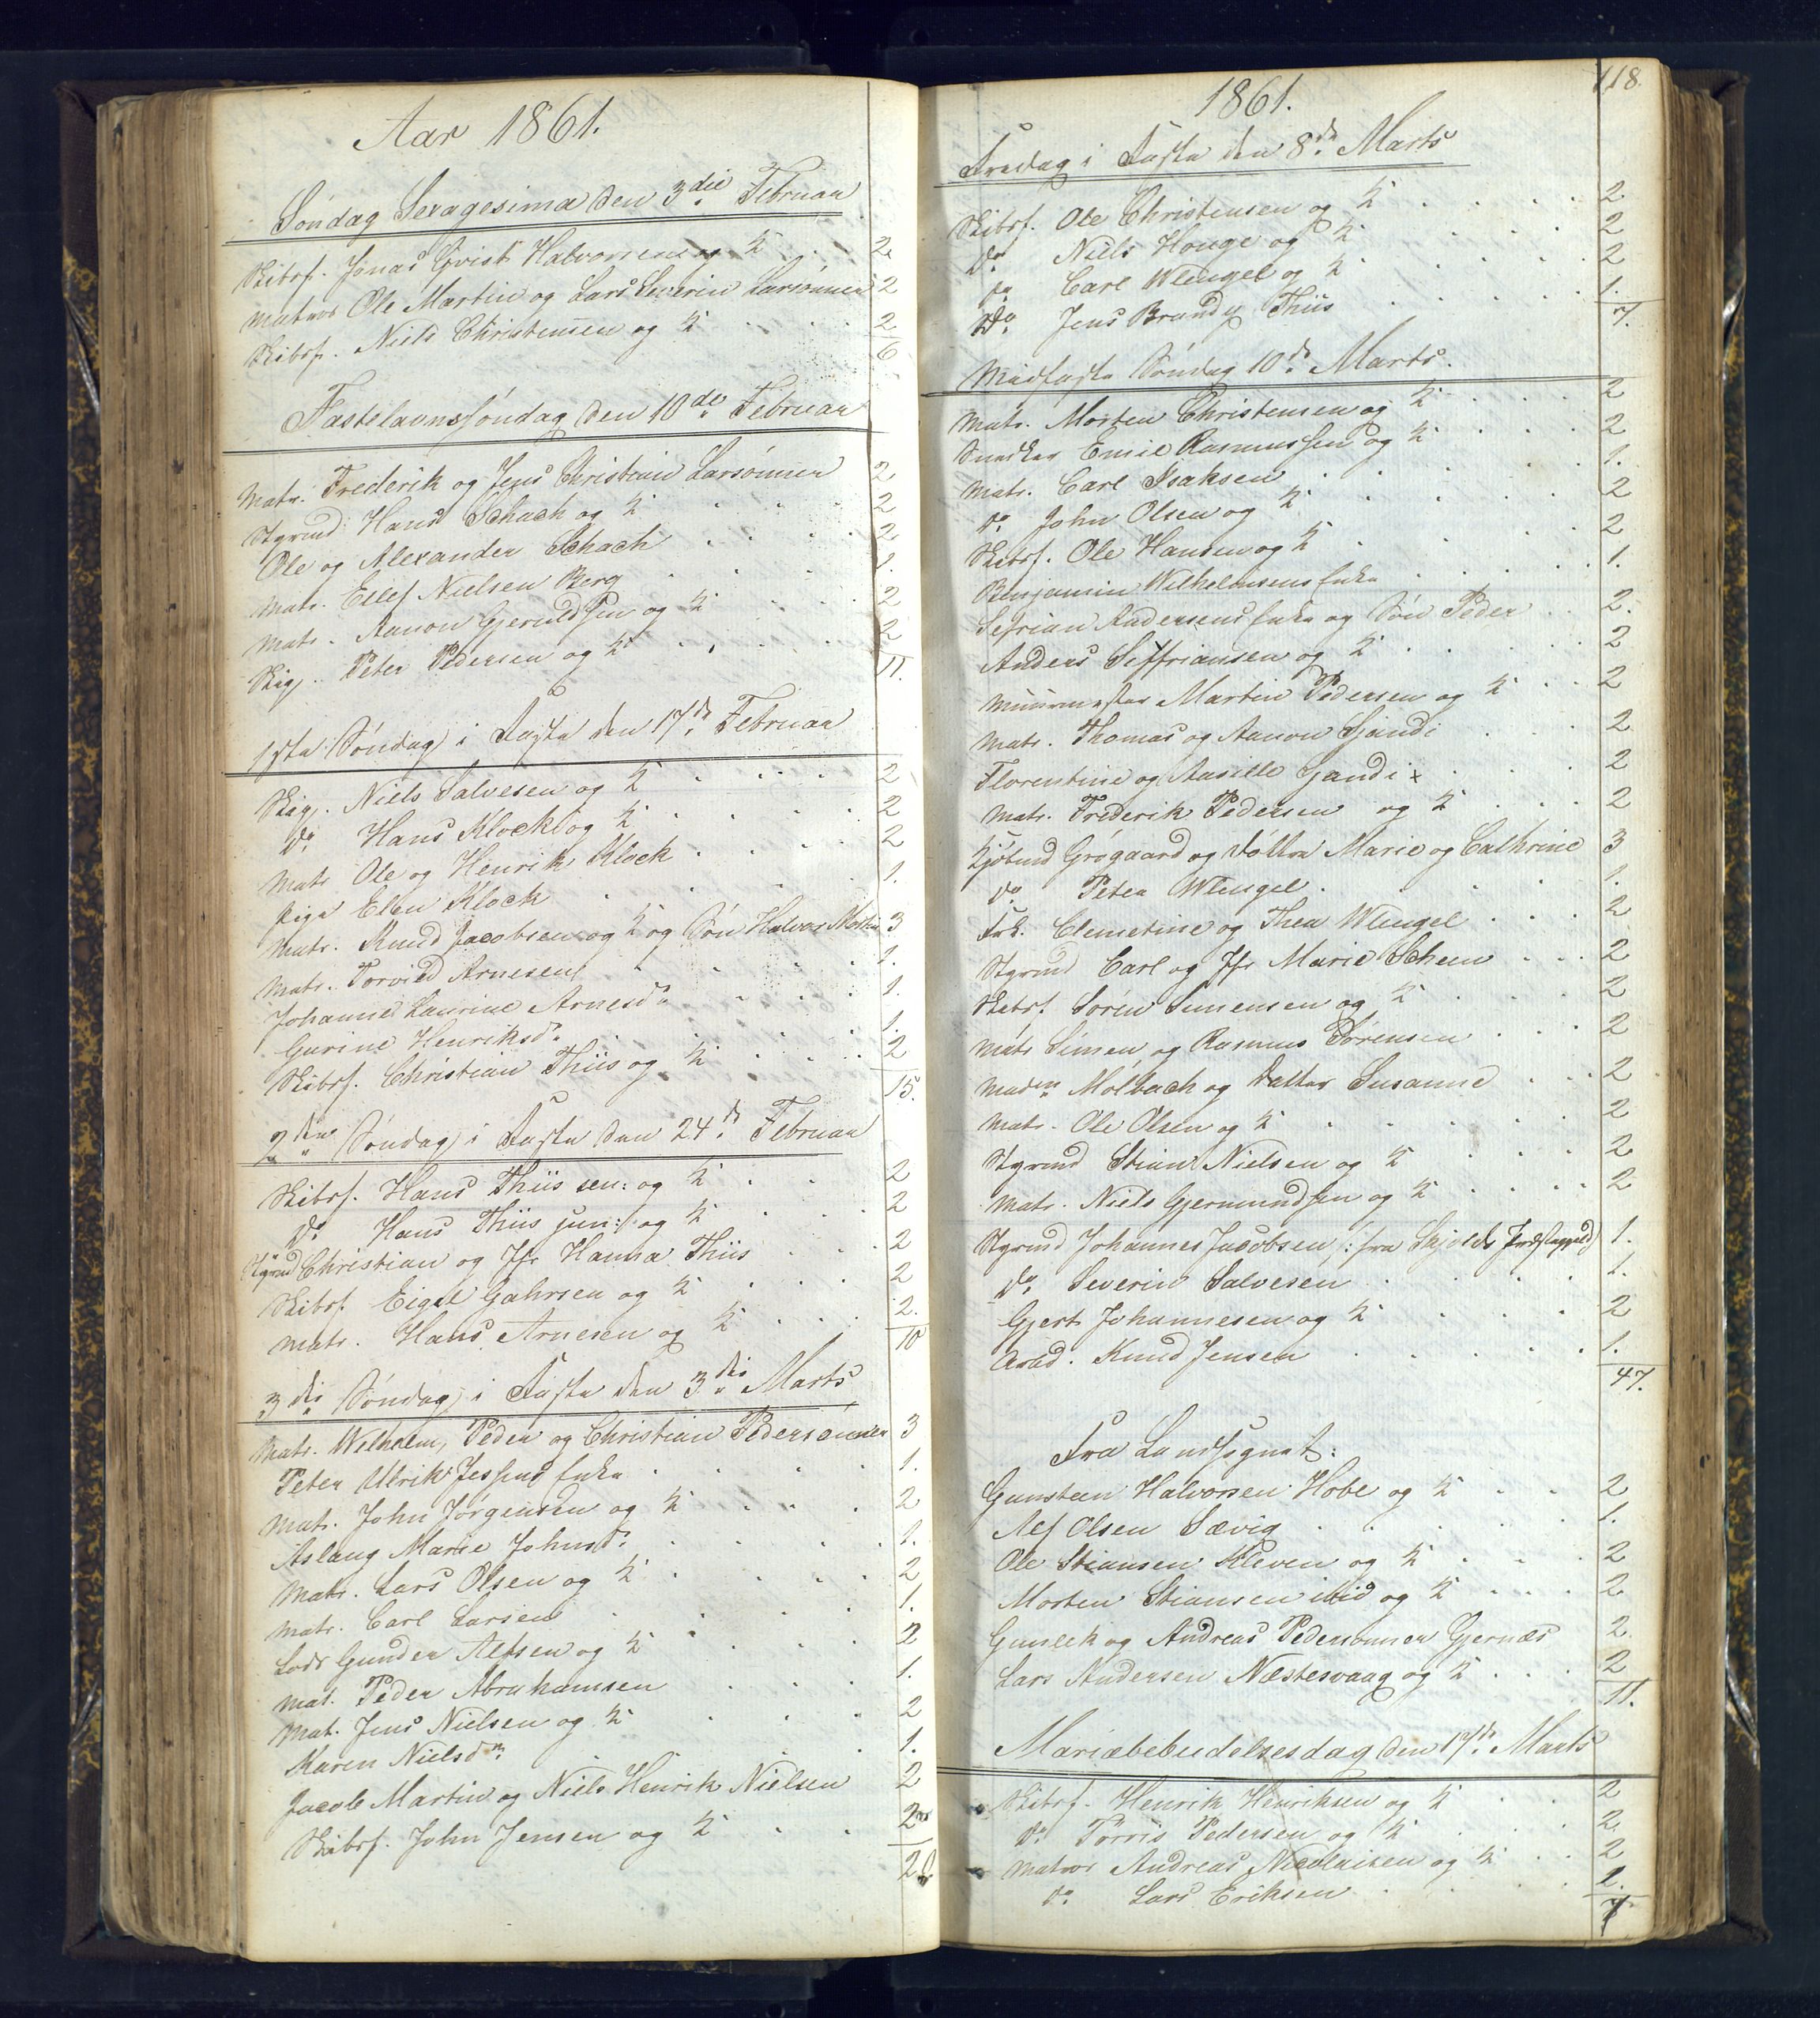 Aar 1861.
Søndag Sexagesima den 3die Februar
Skibsf. Jonas Qvist Halvorsen og K. 2
Matros Ole Martin og Lars Severin Larsønner 2
Skibsf. Niels Christensen og K. 2
6
Fastelavnssøndag den 10de Februar
Matr. Frederik og Jens Christian Larsønner 2
Styrmd Hans Schach og K. 2
Ole og Alexander Schach 2
Matr. Ellef Nielsen Berg 1.
Matr. Aanon Gjeruldsen og K. 2
Skip. Peter Pedersen og K. 2
11.
1ste Søndag i Faste den 17de Februar
Skip. Niels Salvesen og K. 2
Do Hans Klock og K. 2
Matr Ole og Henrik Klock 2
Pige Elen Klock 1.
Matr. Knud Jacobsen og K og Søn Halvor Martin 3
Matr. Torvild Arnesen 1.
Johanne Laurine Arnesdr 1.
Gurine Henriksdr 1.
Skibsf. Christian Thiis og K. 2
15.
2den Søndag i Faste den 24de Februar
Skibsf. Hans Thiis sen: og K. 2
Do Hans Thiis jun: og K. 2
Styrmd Christian og Jfr Hanna Thiis 2
Skibsf. Eigel Gahrsen og K. 2
Matr. Hans Arnesen og K. 2.
10
3die Søndag i Faste den 3die Marts
Matr. Wilhelm, Peder og Christian Pedersønner 3
Peter Ulrik Jessens Enke 1.
Matr. John Jørgensen og K. 2
Aslaug Marie Johnsdr 1.
Matr. Lars Olsen og K. 2
Matr. Carl Larsen 1.
Lods Gunder Alfsen og K. 2
Mat. Peder Abrahamsen 1.
Mat. Jens Nielsen og K. 2
Karen Nielsdr 1.
Jacob Martin og Niels Henrik Nielsen 2
Skibsf. John Jensen og K. 2
118.
1861.
Fredag i Faste den 8de Marts
Skibsf. Ole Christensen og K. 2
Do Niels Houge og K. 2
Do Carl Wlengel og K. 2
Do Jens Brandy Thiis 1.
7.
Midfaste Søndag 10de Marts.
Matr. Morten Christensen og K. 2
Snedker Emil Rasmussen og K. 2
Matr. Carl Isaksen 1.
Do John Olsen og K. 2
Skibsf. Ole Hansen og K. 2
Benjamin Wilhelmsens Enke 1.
Sefrian Andersens Enke og Søn Peder 2.
Anders Seffriansen og K. 2
Muurmester Martin Pedersen og K. 2
Matr. Thomas og Aanon Gjandi 2
Florentine og Aasille Gandi x 2
Matr. Frederik Pedersen og K. 2
Kjøbmd Grøgaard og Døttre Marie og Cathrine 3
Do Peter Wlengel. 1.
Frk. Clemetine og Thea Wlengel 2
Styrmd Carl og Jfr Marie Scheen 2
Skibsf. Søren Simensen og K. 2
Matr Simen og Rasmus Sørensen 2
Madm Mølbach og Datter Susanne 2
Matr. Ole Olsen og K. 2
Styrmd Stian Nielsen og K. 2
Matr. Niels Gjermundsen og K. 2
Styrmd Johannes Jacobsen /: fra Skjolds Præstegjeld) 1.
Do Severin Salvesen 1.
Gjert Johannesen og K. 2
Arbd. Knud Jensen 1.
47.
Fra Landsognet:
Gunsteen Halvorsen Hobe og K. 2
Alf Olsen Sævig 1.
Ole Stiansen Kleven og K. 2
Morten Stiansen ibid og K. 2
Gunlek og Andreas Pedersønner Gjernæs 2.
Lars Andersen Næstesvaag og K. 2
11.
Mariæbebudelsesdag den 17de Marts
Skibsf. Henrik Henriksen og K. 2
Do Torris Pedersen og K. 2.
Matros Andreas Nicolaisen og K. 2
Do Lars Eriksen 1.
7